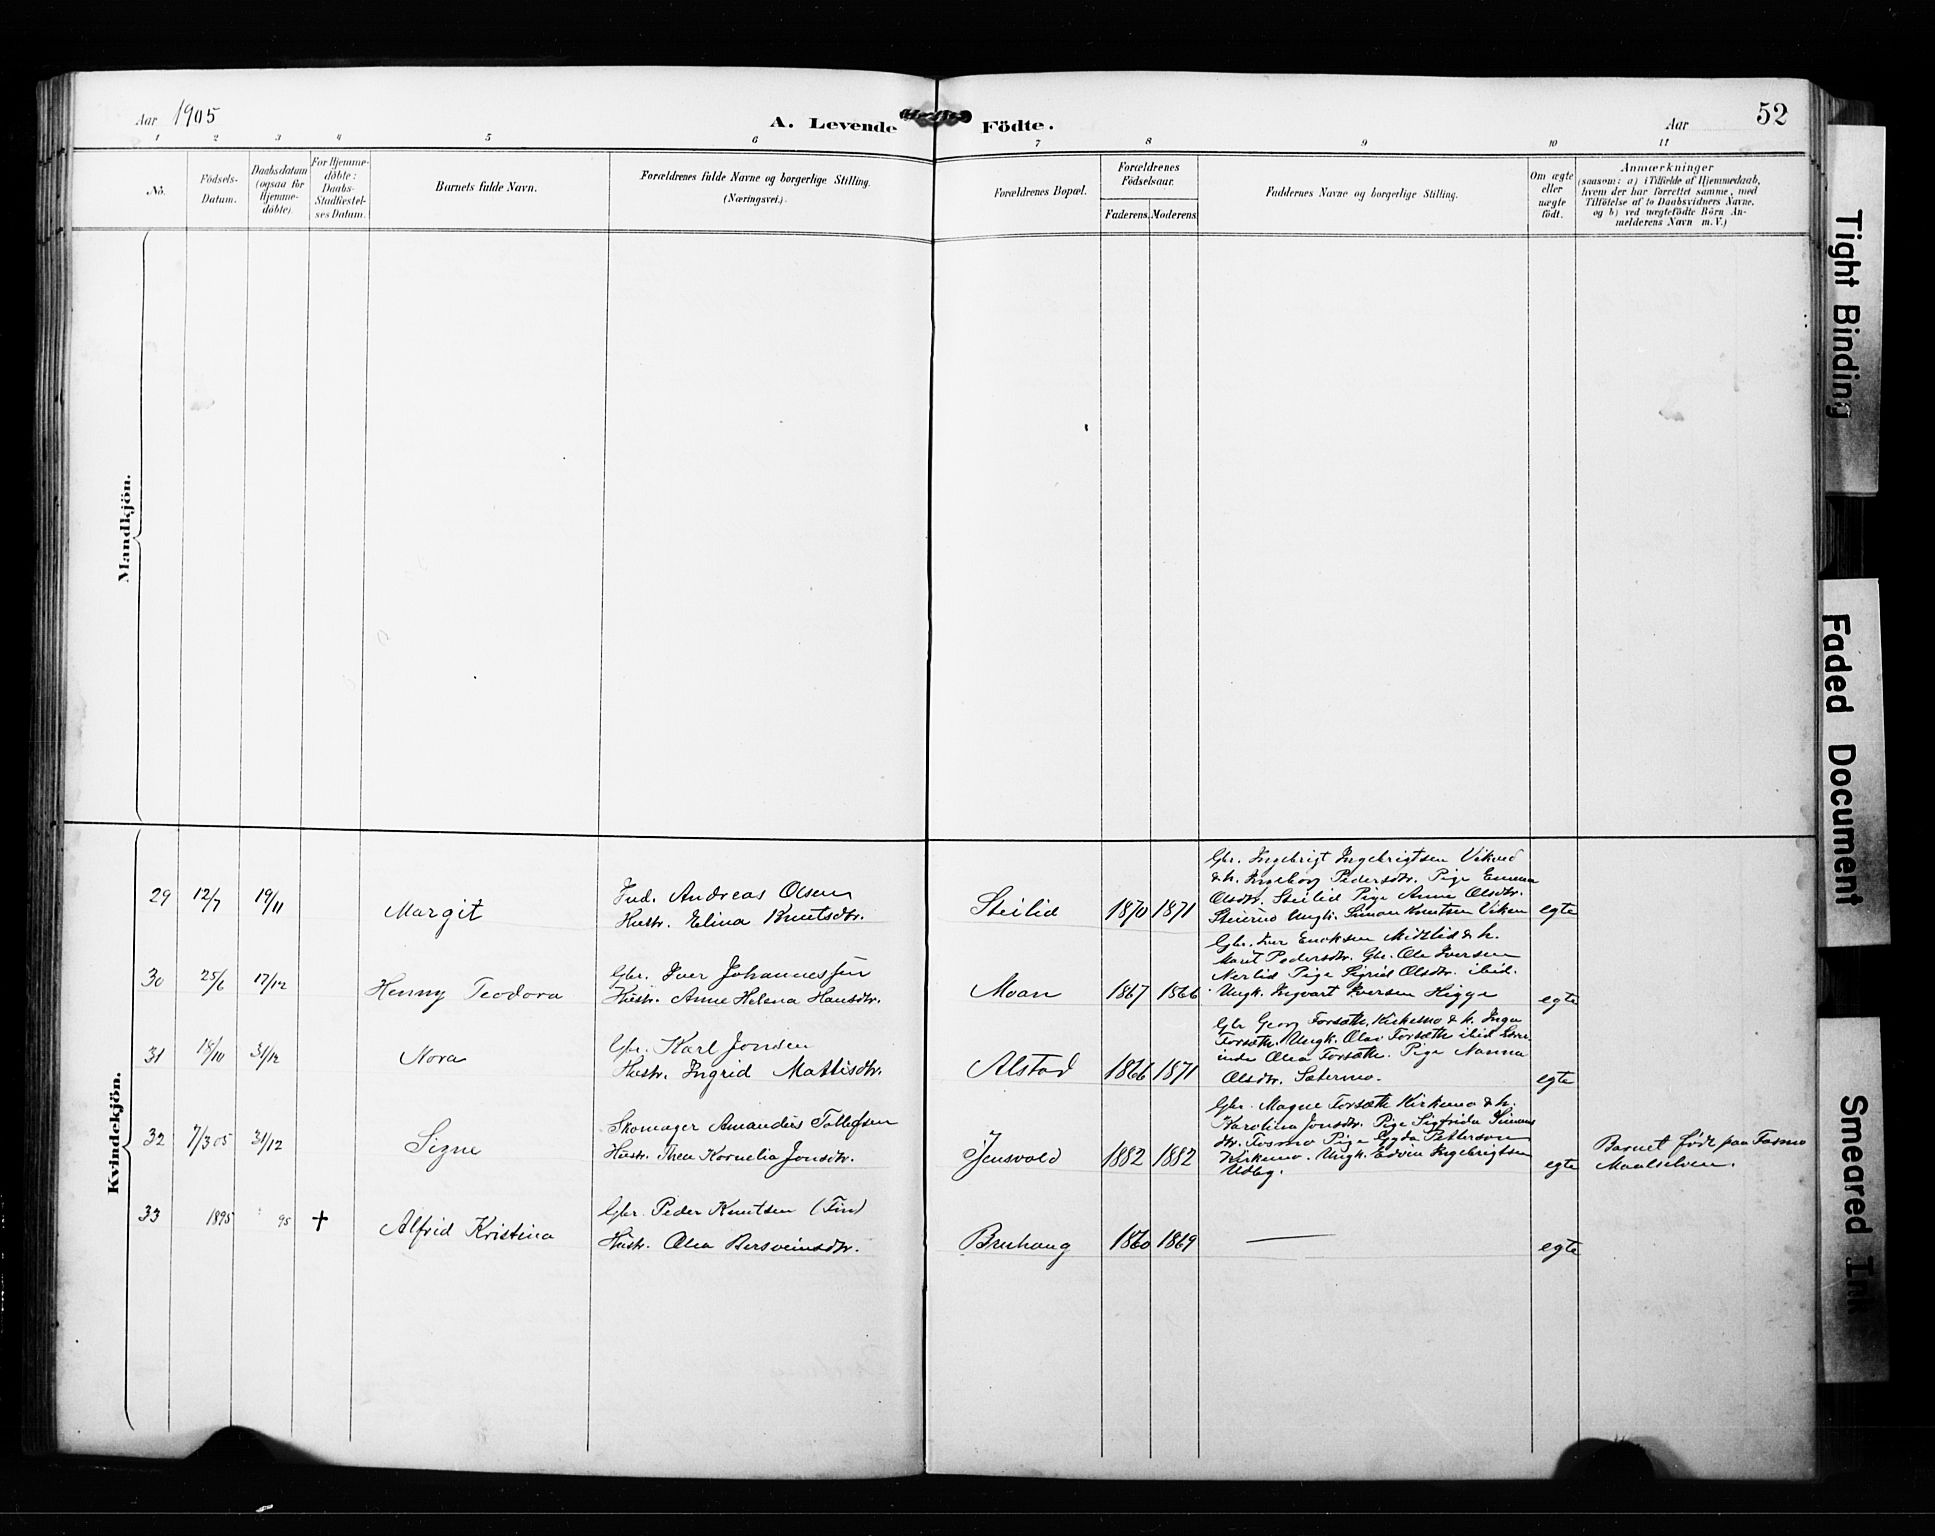 Aar 1905
A. Levende Födte.
Aar
52
1 2 3 4 5 6 7 8 9 10 11
No.
Födsels-
Datum.
Daabsdatum
(ogsaa for
Hjemme-
döbte).
For Hjemme-
döbte:
Daabs-
Stadfæstel-
ses Datum.
Barnets fulde Navn.
Forældrenes fulde Navne og borgerlige Stilling.
(Næringsvei.)
Forældrenes Bopæl.
Forældrenes
Födselsaar.
Faderens. Moderens.
Faddernes Navne og borgerlige Stilling.
Om ægte
eller
uægte
födt.
Anmærkninger
(saasom: a) i Tilfælde af Hjemmedaab,
hvem der har forrettet samme, med
Tilföielse af to Daabsvidners Navne,
og b) ved uægtefödte Börn An-
melderens Navn m. V.)
Mandkjön.
Kvindekjön.
29 12/7 19/11 Margit
Ind. Andreas Olsen
Hustr. Elina Knutsdtr.
Steilid 1870 1871
Gbr. Ingebrigt Ingebrigtsen Vikned
& h. Ingeborg Pedersdtr. Pige Emma
Olsdtr. Steilid Pige Anne Olsdtr.
Ungk. Simon Knutsen Viken
egte
30 25/6 17/12 Henny Teodora
Gbr. Iver Johannessen
Hustr. Anne Helena Hansdtr.
Moan 1867 1866
Gbr. Iver Eriksen Midtlid & h.
Marit Pedersdtr. Gbr. Ole Iversen
Nerlid Pige Sigrid Olsdtr. ibid.
Ungk. Ingvart Iversen Higge
egte
31 18/10 31/12 Nora
Gbr. Karl Jonsen
Hustr. Ingrid Mattisdtr.
Alstad 1866 1871
Gbr Georg Forsæth, Kirkemo & h. Inga
Forsæth. Ungk. Olav Forsæth ibid Lære
inde Olea Forsæth. Pige Nanna
Olsdtr. Sætermo.
egte
32 7/3 05 31/12 Signe
Skomager Amandus Tollefsen
Hustr. Thea Kornelia Jonsdtr.
Jensvold 1882 1882
Gbr. Magne Forsæth Kirkemo & h.
Karolina Jonsdtr. Pige Sigfrida Simons
dtr. Fosmo Pige Gyda Pettersen
Kirkemo. Ungk. Edvin Ingebrigtsen
Udbg.
egte
Barnet född paa Fosmo
Maalselven.
33 1895 95 + Alfrid Kristina
Gbr. Peder Knutsen (Fin)
Hustr. Olea Bersveinsdtr.
Bruhaug 1860 1869
egte
Tight Binding
Faded Document
Smeared Ink